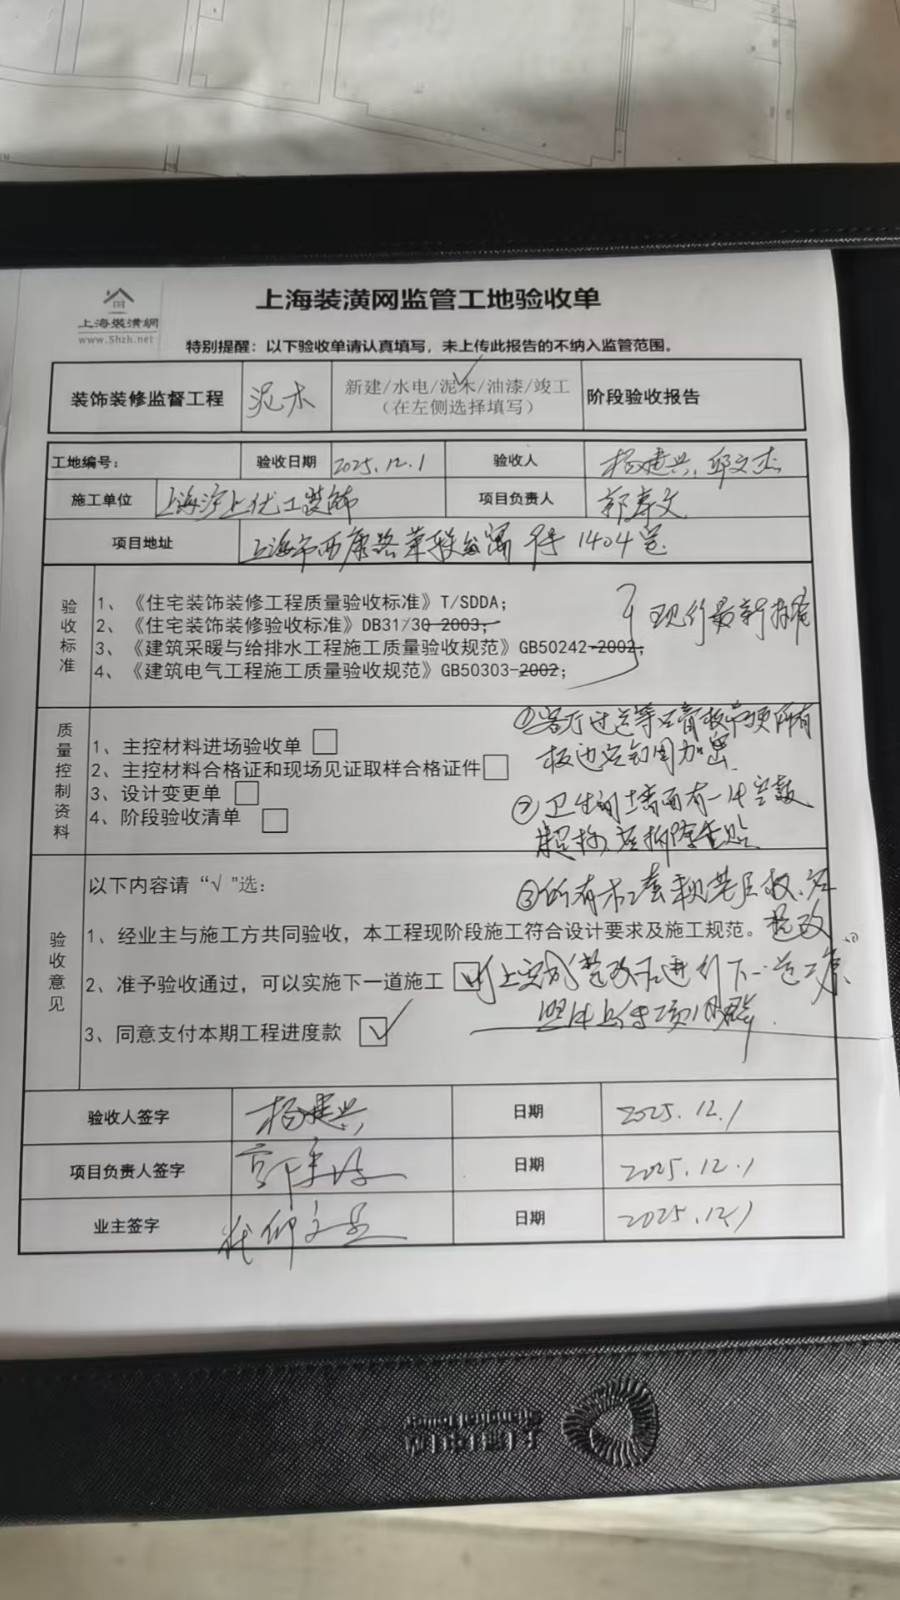 上海装潢網
www.shzh.net
上海装潢网监管工地验收单
特别提醒：以下验收单请认真填写，未上传此报告的不纳入监管范围。
装饰装修监督工程 泥木 新建/水电/泥木/油漆/竣工 阶段验收报告
（在左侧选择填写）
工地编号： 验收日期 2025.12.1 验收人 杨建兴、邱文杰
施工单位 上海沪上优工装饰 项目负责人
项目地址 上海市西康路 1404室
验收标准
1、《住宅装饰装修工程质量验收标准》T/SDDA；
2、《住宅装饰装修验收标准》DB31/30-2003；
3、《建筑采暖与给排水工程施工质量验收规范》GB50242-2002；
4、《建筑电气工程施工质量验收规范》GB50303-2002；
现行最新标准
质量控制资料
1、主控材料进场验收单
2、主控材料合格证和现场见证取样合格证件
3、设计变更单
4、阶段验收清单
①客厅过道等石膏板吊顶所有
板边 加密
②卫生间墙面有一块空鼓
超标，应拆除重贴
③所有木工
整改
验收意见
以下内容请“√”选：
1、经业主与施工方共同验收，本工程现阶段施工符合设计要求及施工规范。
2、准予验收通过，可以实施下一道施工 以上完成整改后进行下一道工序
照片上传工项目群
3、同意支付本期工程进度款 √
验收人签字 杨建兴 日期 2025.12.1
项目负责人签字 日期 2025.12.1
业主签字 日期 2025.12.1